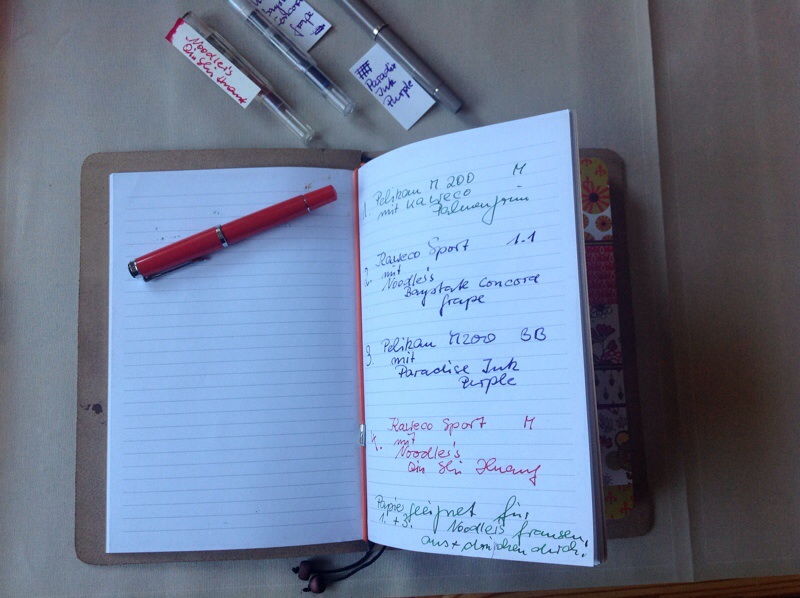 Noodler's
Qin Shi Huang
Baystate
Concord
Grape
Paradise
Ink
Purple
1. Pelikan M 200 M
mit Kaweco
Palmengrün
2. Kaweco Sport 1.1
mit
Noodler's
Baystate Concord
Grape
3. Pelikan M200 BB
mit
Paradise Ink
Purple
4. Kaweco Sport M
mit
Noodler's
Qin Shi Huang
Papier geeignet für
1. + 3. Noodler's fransen
aus + drücken durch.